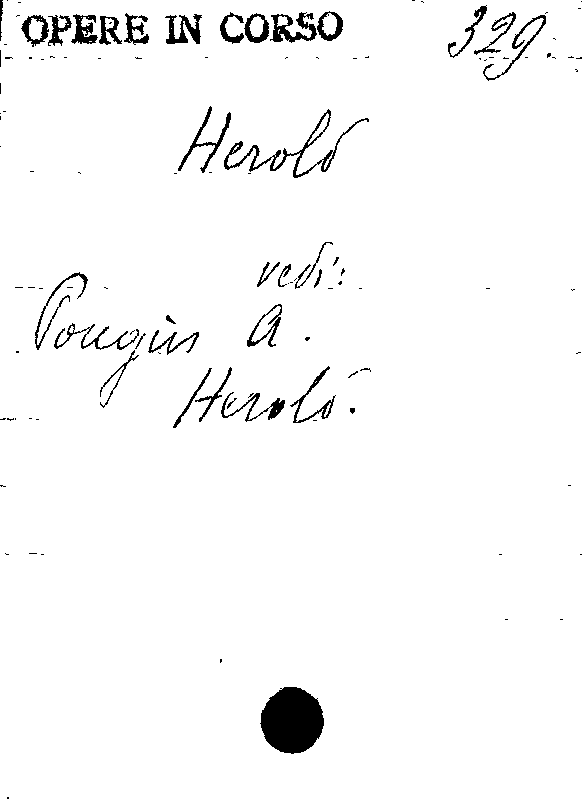 OPERE IN CORSO 329.
Herold
vedi:
Pougin A.
Herold.